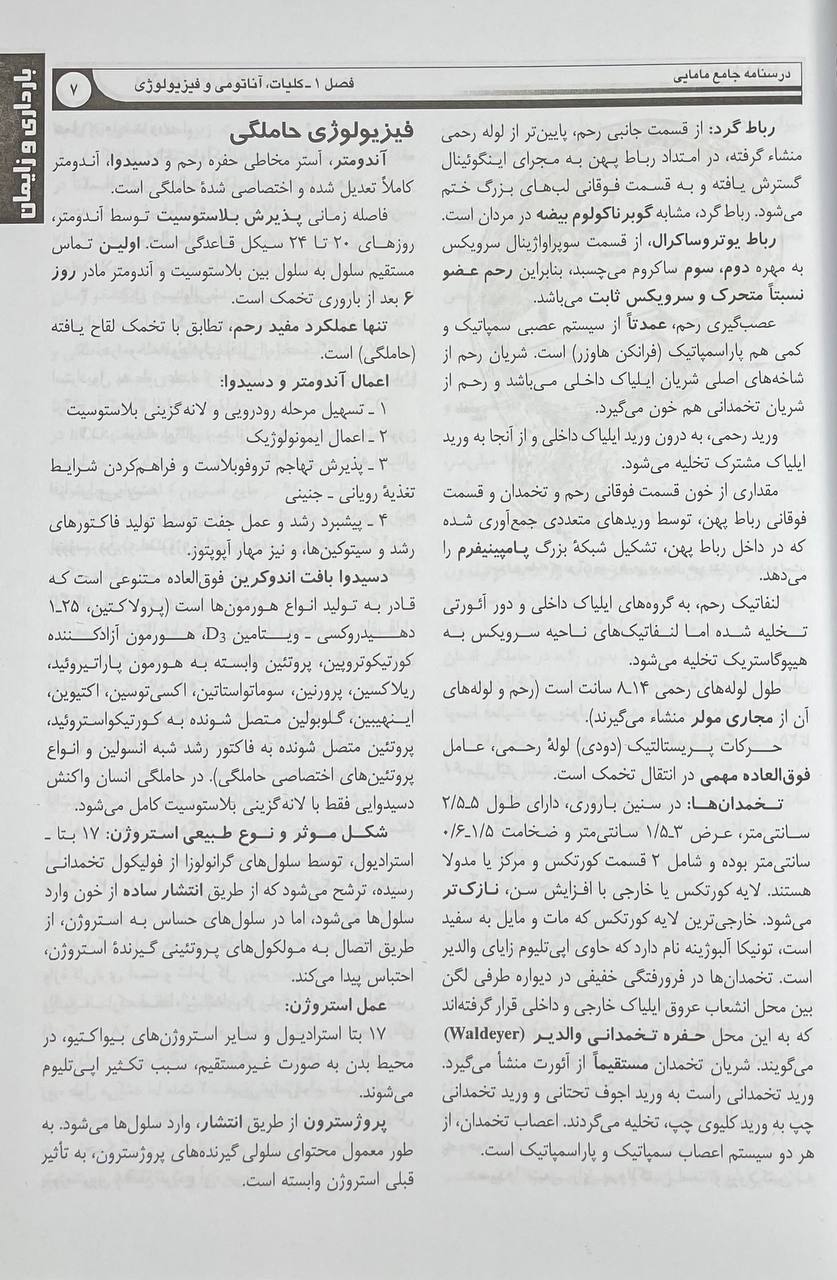 درسنامه جامع مامایی
فصل ۱ ـ کلیات، آناتومی و فیزیولوژی
۷
بارداری و زایمان
رباط گرد: از قسمت جانبی رحم، پایین‌تر از لوله رحمی
منشاء گرفته، در امتداد رباط پهن به مجرای اینگوئینال
گسترش یافته و به قسمت فوقانی لب‌های بزرگ ختم
می‌شود. رباط گرد، مشابه گوبرناکولوم بیضه در مردان است.
رباط یوتروساکرال، از قسمت سوپراواژینال سرویکس
به مهره دوم، سوم ساکروم می‌چسبد، بنابراین رحم عضو
نسبتاً متحرک و سرویکس ثابت می‌باشد.
عصب‌گیری رحم، عمدتاً از سیستم عصبی سمپاتیک و
کمی هم پاراسمپاتیک (فرانکن هاوزر) است. شریان رحم از
شاخه‌های اصلی شریان ایلیاک داخلی می‌باشد و رحم از
شریان تخمدانی هم خون می‌گیرد.
ورید رحمی، به درون ورید ایلیاک داخلی و از آنجا به ورید
ایلیاک مشترک تخلیه می‌شود.
مقداری از خون قسمت فوقانی رحم و تخمدان و قسمت
فوقانی رباط پهن، توسط وریدهای متعددی جمع‌آوری شده
که در داخل رباط پهن، تشکیل شبکهٔ بزرگ پامپینیفرم را
می‌دهد.
لنفاتیک رحم، به گروه‌های ایلیاک داخلی و دور آئورتی
تخلیه شده اما لنفاتیک‌های ناحیه سرویکس به
هیپوگاستریک تخلیه می‌شود.
طول لوله‌های رحمی ۱۴ـ۸ سانت است (رحم و لوله‌های
آن از مجاری مولر منشاء می‌گیرند).
حرکات پریستالتیک (دودی) لولهٔ رحمی، عامل
فوق‌العاده مهمی در انتقال تخمک است.
تخمدان‌ها: در سنین باروری، دارای طول ۵ـ۲/۵
سانتی‌متر، عرض ۳ـ۱/۵ سانتی‌متر و ضخامت ۱/۵ـ۰/۶
سانتی‌متر بوده و شامل ۲ قسمت کورتکس و مرکز یا مدولا
هستند. لایه کورتکس یا خارجی با افزایش سن، نازک‌تر
می‌شود. خارجی‌ترین لایه کورتکس که مات و مایل به سفید
است، تونیکا آلبوژینه نام دارد که حاوی اپی‌تلیوم زایای والدیر
است. تخمدان‌ها در فرورفتگی خفیفی در دیواره طرفی لگن
بین محل انشعاب عروق ایلیاک خارجی و داخلی قرار گرفته‌اند
که به این محل حفره تخمدانی والدیر (Waldeyer)
می‌گویند. شریان تخمدان مستقیماً از آئورت منشأ می‌گیرد.
ورید تخمدانی راست به ورید اجوف تحتانی و ورید تخمدانی
چپ به ورید کلیوی چپ، تخلیه می‌گردند. اعصاب تخمدان، از
هر دو سیستم اعصاب سمپاتیک و پاراسمپاتیک است.
فیزیولوژی حاملگی
آندومتر، آستر مخاطی حفره رحم و دسیدوا، آندومتر
کاملاً تعدیل شده و اختصاصی شدهٔ حاملگی است.
فاصله زمانی پذیرش بلاستوسیت توسط آندومتر،
روزهای ۲۰ تا ۲۴ سیکل قاعدگی است. اولین تماس
مستقیم سلول به سلول بین بلاستوسیت و آندومتر مادر روز
۶ بعد از باروری تخمک است.
تنها عملکرد مفید رحم، تطابق با تخمک لقاح یافته
(حاملگی) است.
اعمال آندومتر و دسیدوا:
۱ ـ تسهیل مرحله رودرویی و لانه‌گزینی بلاستوسیت
۲ ـ اعمال ایمونولوژیک
۳ ـ پذیرش تهاجم تروفوبلاست و فراهم‌کردن شرایط
تغذیهٔ رویانی ـ جنینی
۴ ـ پیشبرد رشد و عمل جفت توسط تولید فاکتورهای
رشد و سیتوکین‌ها، و نیز مهار آپوپتوز.
دسیدوا بافت اندوکرین فوق‌العاده متنوعی است که
قادر به تولید انواع هورمون‌ها است (پرولاکتین، ۲۵ـ۱
دهیدروکسی ـ ویتامین D3، هورمون آزادکننده
کورتیکوتروپین، پروتئین وابسته به هورمون پاراتیروئید،
ریلاکسین، پرورنین، سوماتواستاتین، اکسی‌توسین، اکتیوین،
اینهیبین، گلوبولین متصل شونده به کورتیکواستروئید،
پروتئین متصل شونده به فاکتور رشد شبه انسولین و انواع
پروتئین‌های اختصاصی حاملگی). در حاملگی انسان واکنش
دسیدوایی فقط با لانه‌گزینی بلاستوسیت کامل می‌شود.
شکل موثر و نوع طبیعی استروژن: ۱۷ بتا ـ
استرادیول، توسط سلول‌های گرانولوزا از فولیکول تخمدانی
رسیده، ترشح می‌شود که از طریق انتشار ساده از خون وارد
سلول‌ها می‌شود، اما در سلول‌های حساس به استروژن، از
طریق اتصال به مولکول‌های پروتئینی گیرندهٔ استروژن،
احتباس پیدا می‌کند.
عمل استروژن:
۱۷ بتا استرادیول و سایر استروژن‌های بیواکتیو، در
محیط بدن به صورت غیرمستقیم، سبب تکثیر اپی‌تلیوم
می‌شوند.
پروژسترون از طریق انتشار، وارد سلول‌ها می‌شود. به
طور معمول محتوای سلولی گیرنده‌های پروژسترون، به تأثیر
قبلی استروژن وابسته است.